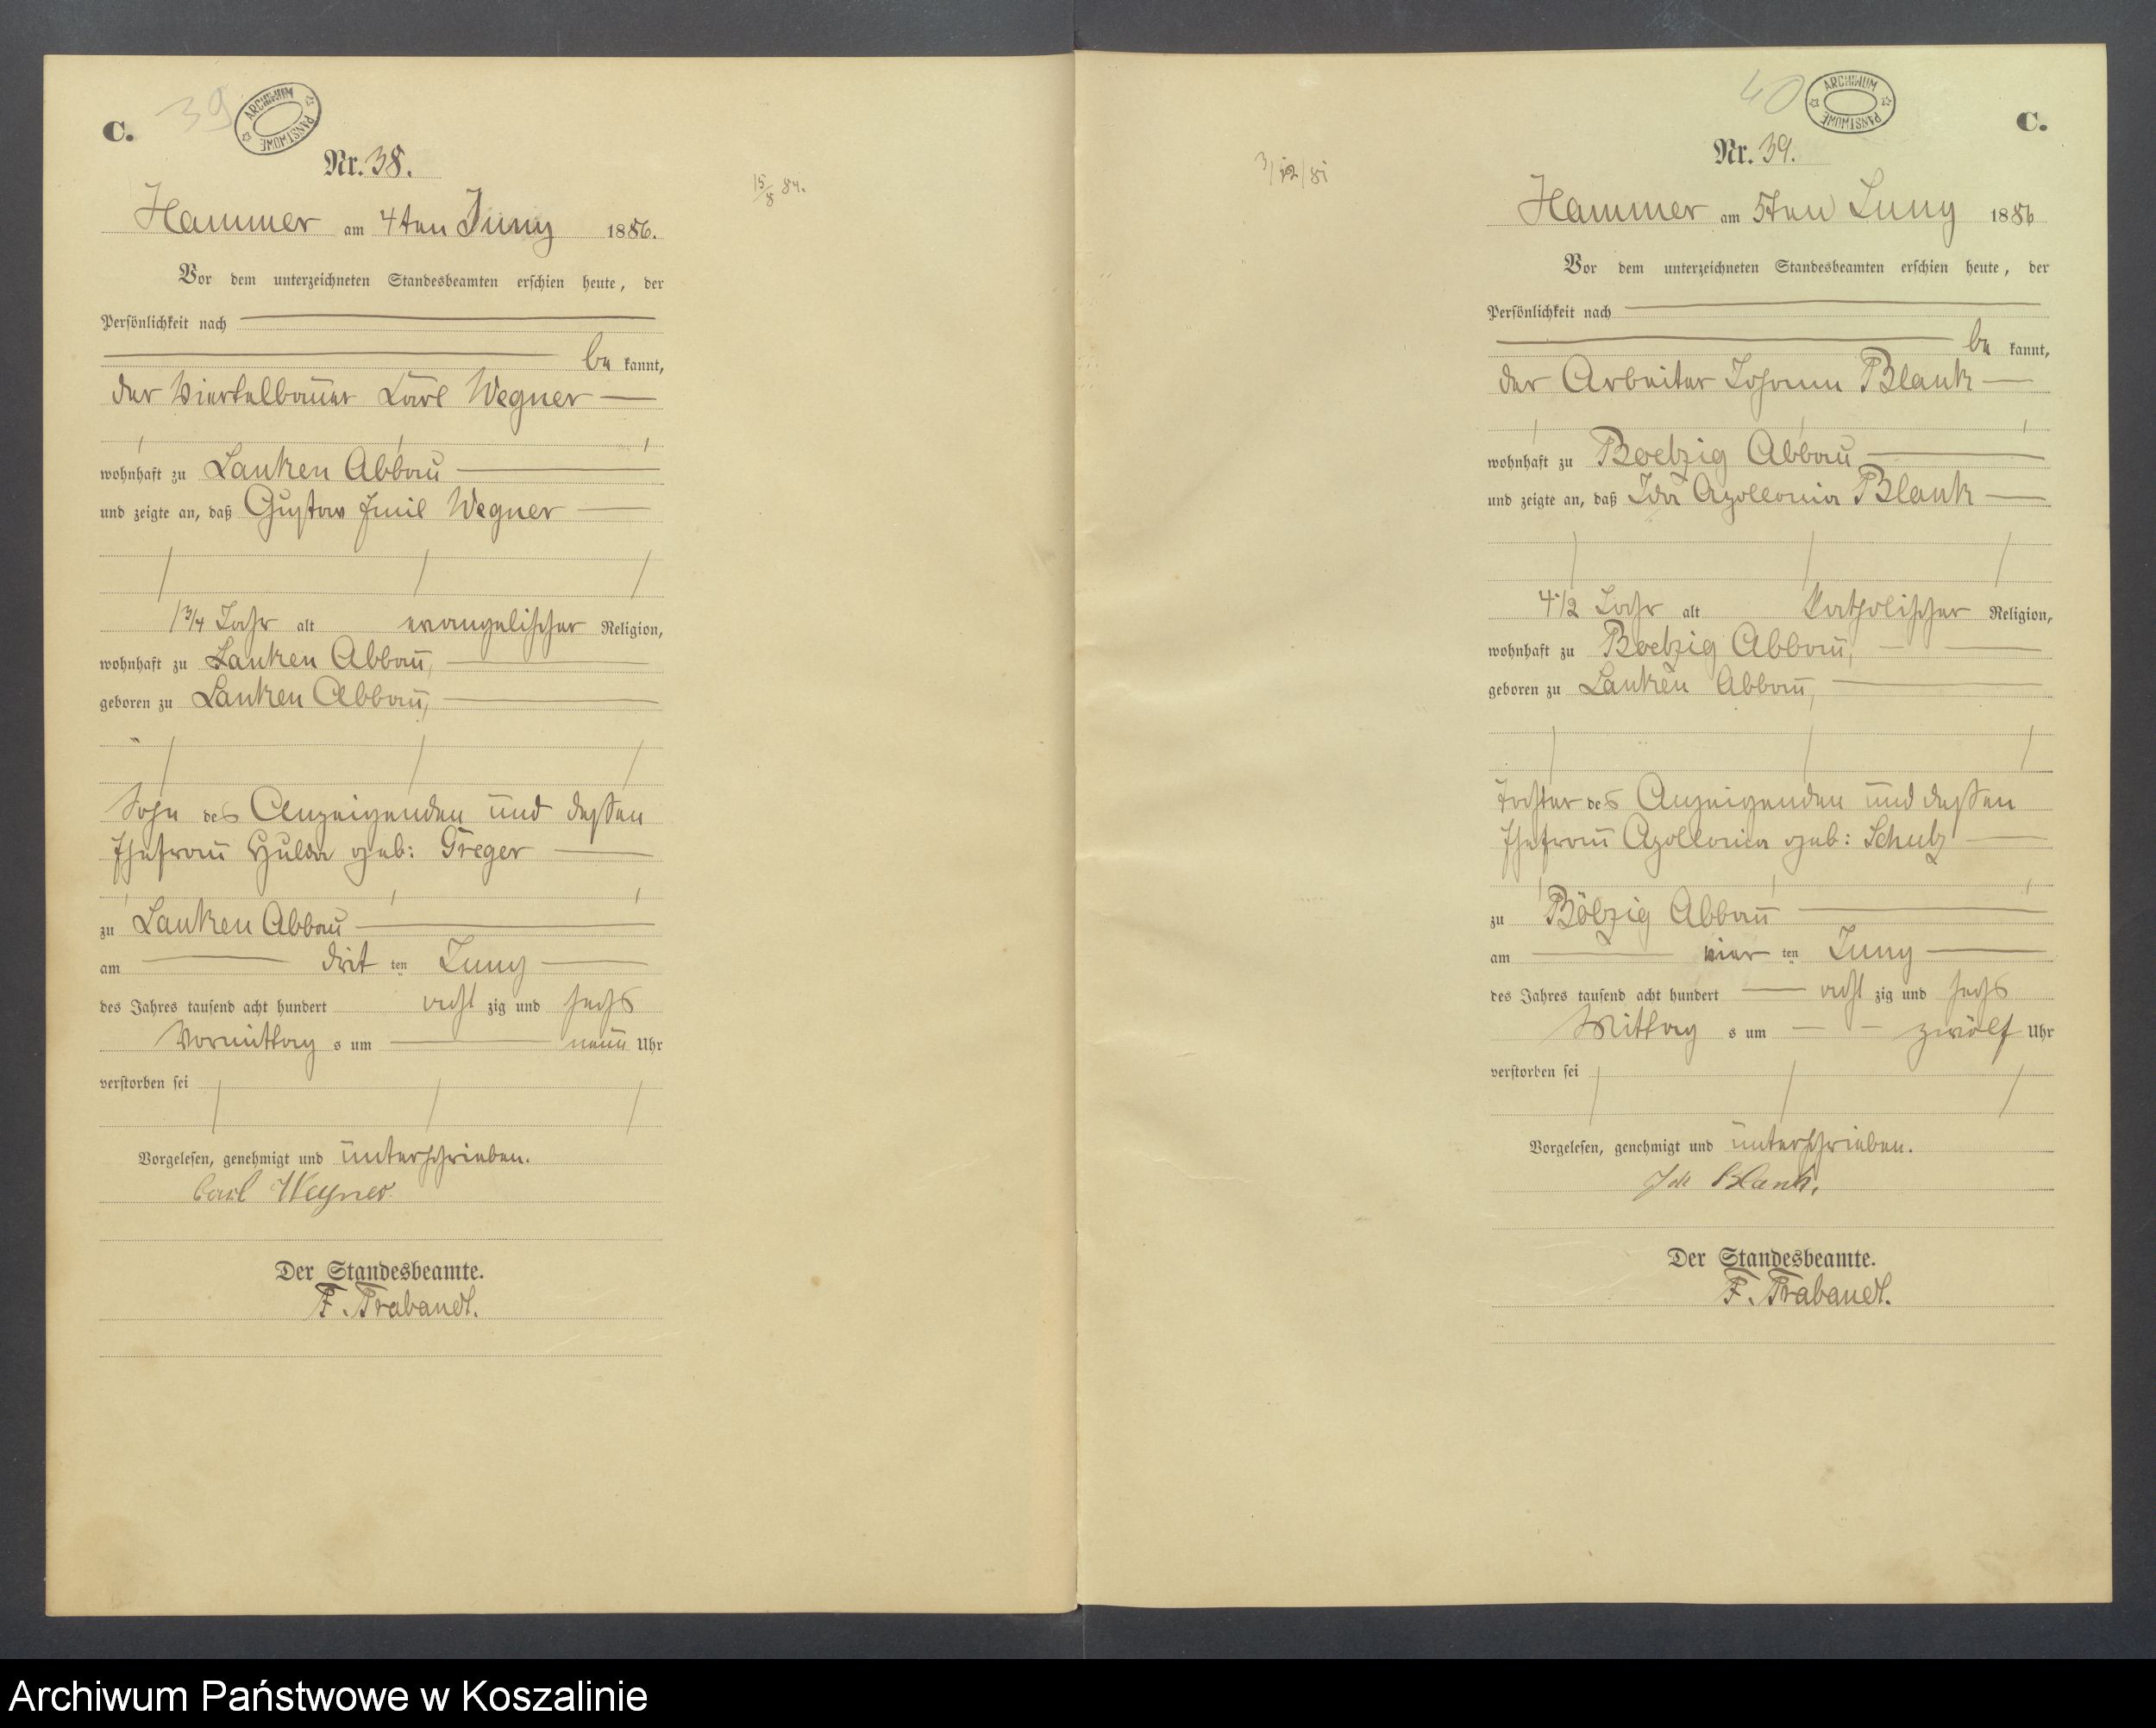 C.
39
ARCHIWUM PAŃSTWOWE
Nr. 38.
15/8 84.
Hammer am 4ten Juny 1886.
Vor dem unterzeichneten Standesbeamten erschien heute, der
Persönlichkeit nach
be kannt,
der Viertelbauer Carl Wegner
wohnhaft zu Lanken Abbau
und zeigte an, daß Gustav Emil Wegner
1 3/4 Jahr alt evangelischer Religion,
wohnhaft zu Lanken Abbau,
geboren zu Lanken Abbau,
Sohn des Anzeigenden und dessen
Ehefrau Hulda geb: Greger
zu Lanken Abbau
am drit ten Juny
des Jahres tausend acht hundert acht zig und sechs
Vormittag s um neun Uhr
verstorben sei
Vorgelesen, genehmigt und unterschrieben.
Carl Wegner
Der Standesbeamte.
F. Trabandt.
40
ARCHIWUM PAŃSTWOWE
C.
Nr. 39.
3/12/81
Hammer am 5ten Juny 1886
Vor dem unterzeichneten Standesbeamten erschien heute, der
Persönlichkeit nach
be kannt,
der Arbeiter Johann Blank
wohnhaft zu Boelzig Abbau
und zeigte an, daß Ida Apollonia Blank
4 1/2 Jahr alt katholischer Religion,
wohnhaft zu Boelzig Abbau,
geboren zu Lanken Abbau,
Tochter des Anzeigenden und dessen
Ehefrau Apollonia geb: Schulz
zu Bölzig Abbau
am vier ten Juny
des Jahres tausend acht hundert acht zig und sechs
Mittag s um zwölf Uhr
verstorben sei
Vorgelesen, genehmigt und unterschrieben.
Joh Blank.
Der Standesbeamte.
F. Trabandt.
Archiwum Państwowe w Koszalinie